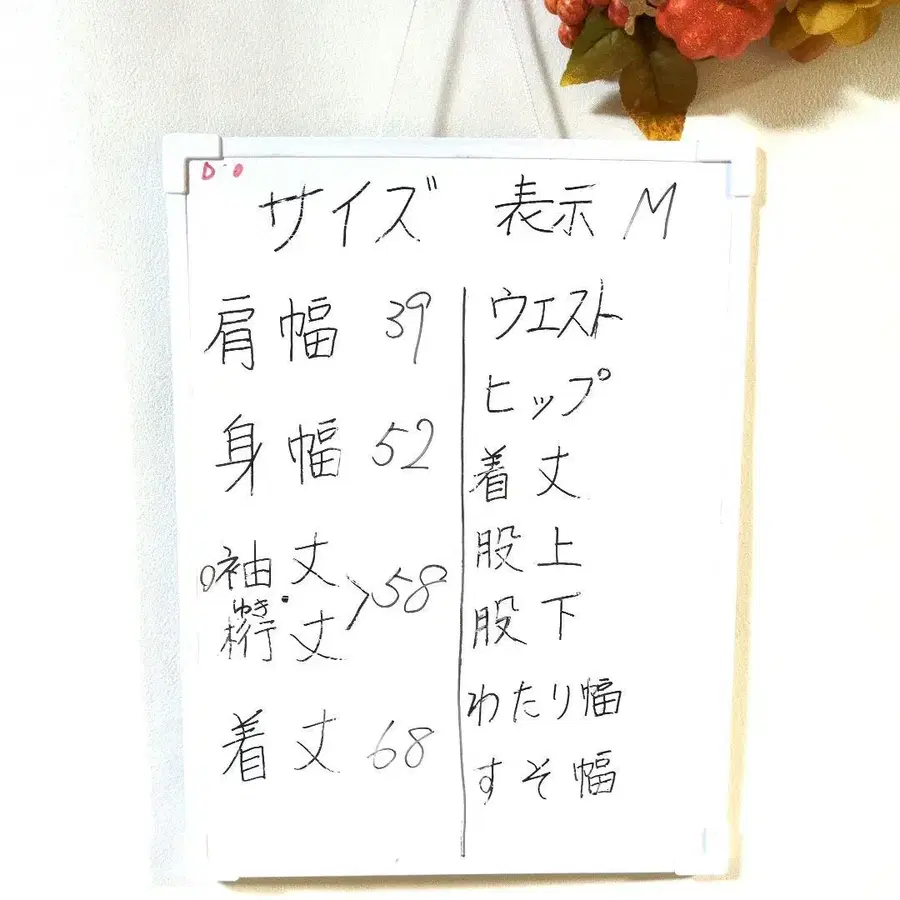 D-0
サイズ 表示 M
肩幅 39
身幅 52
○袖丈
ゆき
桁丈 >58
着丈 68
ウエスト
ヒップ
着丈
股上
股下
わたり幅
すそ幅